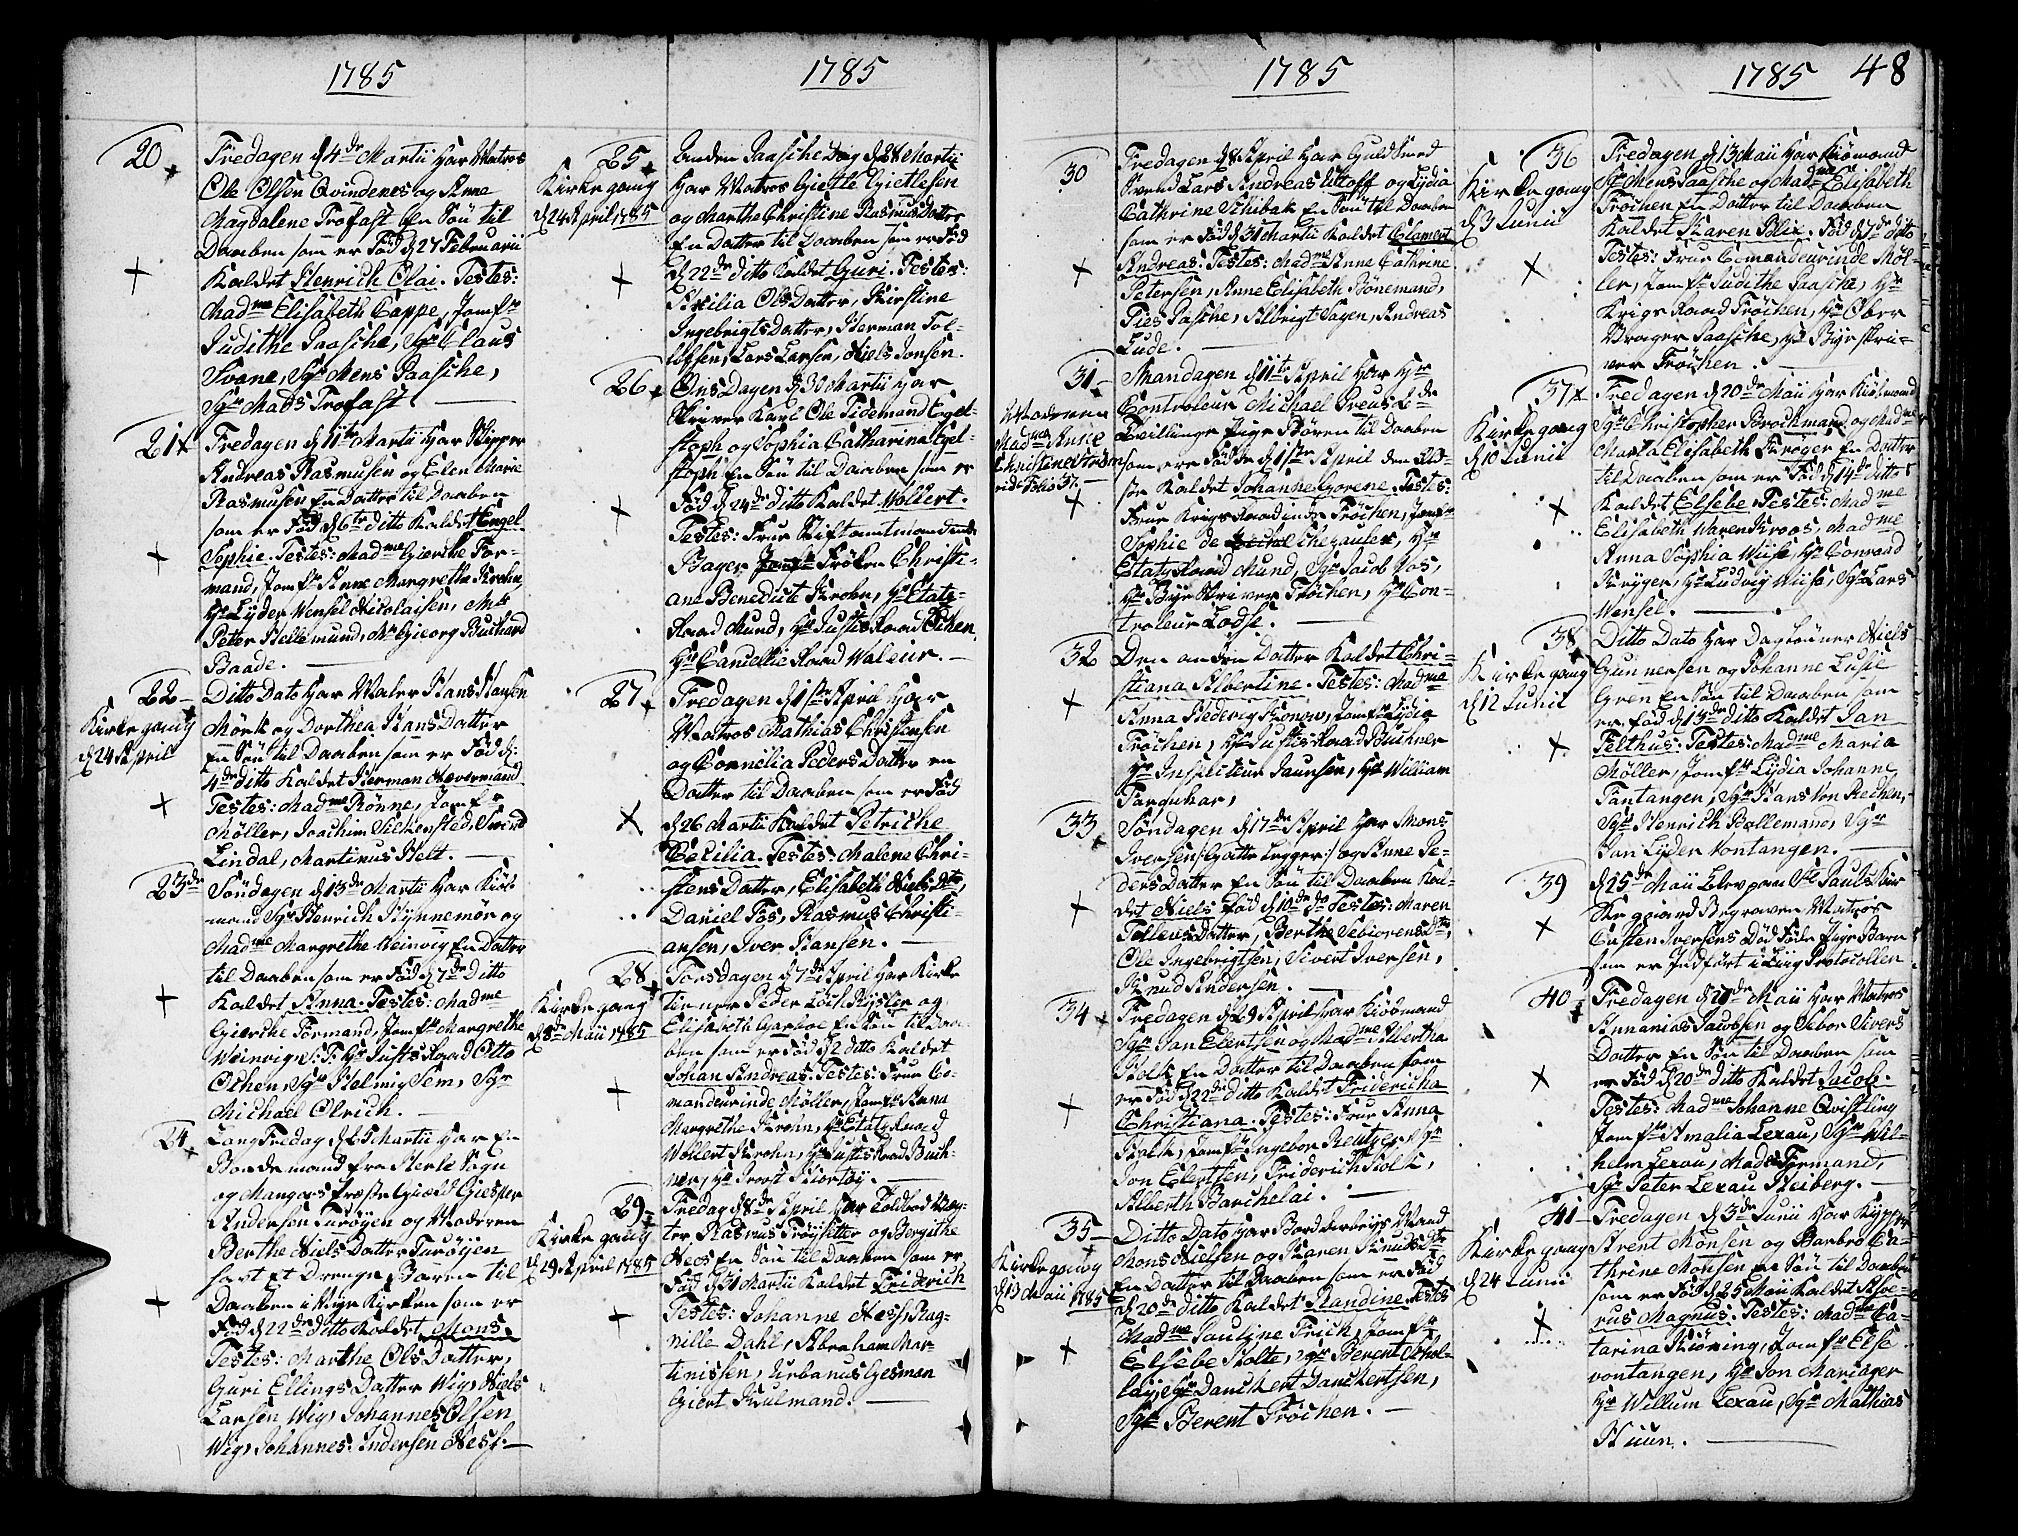 1785
20
Fredagen d 4de Martii har Matros
Ole Olsen Qvindenes og Anne
Magdalene Trofast En Sön til
Daaben som er Föd d 27 Februarii
Kaldet Henrich Olai. Testes:
Madme Elisabeth Cappe, Jomfr
Judithe Paasche, Sgr Claus
Svane, Sgr Mens Paasche,
Sgr Mads Trofast
21
Fredagen d 11te Martii har Skipper
Andreas Rasmusen og Elen Marie
Rasmusen En Datter til Daaben
som er Föd d 6te ditto Kaldet Engel
Sophie. Testes: Madme Giertke For-
mand, Jomfr Anne Margrethe Krohn,
Hr Lyder Wensel Nicolaisen, Mr
Peter Hellemund, Mr Georg Buchard
Baade.
22
Kirkegang
d 24 April
Ditto Dato har Maler Hans Hansen
Mörk og Dorthea HansDatter
En Sön til Daaben som er Föd d:
4de ditto Kaldet Herman Nevermand
Testes: Madme Rönne, Jomfr
Möller, Joachim Silkensted, Svend
Lindal, Martinus Helt.
23de
Söndagen d 13de Martii har Kiöb
mand Sgr Henrich Hynnemör og
Madme Margrethe Weinvig En Datter
til Daaben som er Föd d 7de Ditto
Kaldet Anna. Testes: Madme
Giertke Formand, Jomfr Margrethe
Weinvig, S: T: Hr Justs Raad Otto
Othen, Sgr Helmig Sem, Sgr
Michael Olrich.
24
Lang Fredag d 25 Martii har En
Bonde mand fra Herle Sogn
og Mangers Præste Gield Giesper
Anderson Turöyen og Moderen
Berthe NielsDatter Turöyen
hast Et Drenge Baren til
Daaben i Nye Kirken som er
Föd d 22de ditto Kaldet Mons
Testes: Marthe OlsDatter,
Guri EllingsDatter Wig, Niels
Larsen Wig, Johannes Olsen
Wig, Johannes Andersen Ness.
1785
25
Kirkegang
d 24 April 1785
Anden Paasche Dag d 28 Martii
har Matros Gietle Gietlesen
og Marthe Christine RasmusDatter
En Datter til Daaben som er Föd
d 22de ditto Kaldet Guri. Testes:
Sicilia OlsDatter, Kirstine
IngebrigtsDatter, Herman Tol-
lefsen, Lars Larsen, Niels Jonsen.
26
Onsdagen d 30 Martii har
Skriver Karl Ole Tidemand Engel-
stoph og Sophia Catharina Egel-
stoph En Sön til Daaben som er
Föd d 24de ditto Kaldet Wollert.
Testes: Frue Stiftamtmandinde
Bager Fröken Christi-
ane Benedicte Krohn, Hr Etats-
Raad Mund, Hr Justs Raad Othen
Hr Cancellie Raad Waleur.
27
Fredagen d 1ste April har
Matros Mathias Christensen
og Cornelia PedersDatter en
Datter til Daaben som er Föd
d 26 Martii Kaldet Petricke
Cecilia. Testes: Malene Chri-
stensDatter, Elisabeth Nielsdtr,
Daniel Fos, Rasmus Christi-
ansen, Iver Hansen.
28
Kirkegang
d 8de Maii 1785
Torsdagen d 7de April har Kirke
tiener Peder Loch Ryster og
Elisabeth Garboe En Sön til Daa-
ben som er Föd d 2 ditto Kaldet
Johan Andreas. Testes: Frue Co-
mandeurinde Möller, Jomfr Anna
Margrethe Krohn, Hr Etats Raad
Wollert Krohn, Hr Justs Raad Buch-
ner, Hr Joost Kiortöy.
29
Kirkegang
d 29 April 1785
Fredag d 8de April har Toldbod Vey-
ter Rasmus Tröysetter og Bergithe
Nees En Sön til Daaben som er
Föd d 31 Martii Kaldet Friderich
Testes: Johanne Ness, Rag-
nille Dahl, Abraham Mar-
tinissen, Urbanus Gesman
Giert Kulmand.
1785
30
Fredagen d 8 April har Guld Smed
Svend Lars Andreas Uttoff og Lydia
Cathrine Schibak En Sön til Daaben
som er Föd d 31 Martii Kaldet Clamert
Andreas. Testes: Madme Anne Cathrine
Petersen, Anne Elisabeth Bönemand,
Pies Pasche, Albrigt Sagen, Andreas
Lude.
31
Moderen
Madme Anne
Christine Ström
vide Folio 37.
Mandagen d 11te April har Hr
Controleur Michael Preus Lde
Tvillinge Pige Börn til Daaben
som ere Föde d 1ste April den Eld-
ste Kaldet Johanne Gorene. Testes:
Frue Krigs Raadinde Fröchen, Jomfr
Sophie de Chezaulex, Hr
Etats Raad Mund, Sgr Jacob Jos,
Hr Bye Skriver Fröchen, Hr Con-
troleur Lodse.
32
Den anden Datter Kaldet Chri-
stiana Albertine. Testes: Madme
Anna Hedevig Konow, Jomfr Lydia
Fröchen, Hr Justis Raad Buchner
Hr Inspecteur Jaunsen, Hr William
Farquhar,
33
Söndagen d 17de April har Mons
Iversen /:Gatte Legger:/ og Anne Pe-
dersDatter En Sön til Daaben Kal-
det Niels Föd d 10de do Testes: Maren
TollevsDatter, Berthe Sebiörensdtr,
Ole Ingebrigtsen, Sivert Iversen,
Knud Andersen.
34
Fredagen d 29 April har Kiöbmand
Sgr Jan Elertsen og Madme Albertha
Stolt En Datter til Daaben som
er Föd d 22de ditto Kaldet Fridericha
Christiana. Testes: Frue Anna
Stolt, Jomfr Ingebor Reutz, Sgr
Jon Elertsen, Friderich Stolt,
Alberth Barchelai.
35
Kirkegang
d 13 Maii 1785
Ditto Dato har Bordierbrygs Mand
Mons Nielsen og Karen Knudsdtr
En Datter til Daaben som er Föd
d 20de ditto Kaldet Randine. Testes
Madme Paulyne Frich, Jomfr
Elsebe Stolte, Sgr Berent Nicol-
lay, Sgr Danckert Danckertsen,
Sgr Berent Fröchen.
1785
48
36
Kirkegang
d 3 Junii
Fredagen d 13 Maii har Kiömand
Sgr Mens Paasche og Madme Elisabeth
Fröchen En Datter til Daaben
Kaldet Karen Blix. Föd d 7de ditto
Testes: Frue Comandeurinde Möl-
ler, Jomfr Judithe Paasche, Hr
Krigs Raad Fröchen, Hr Ober
Vrager Paasche, Hr Bye skri-
ver Fröchen.
37
Kirkegang
d 10 Junii
Fredagen d 20de Maii har Kiöbmand
Sgr Christopher Brochmand og Madme
Marta Elisabeth Kröger En Datter
til Daaben som er Föd d 14de ditto
Kaldet Elsebe. Testes: Madme
Elisabeth Waren Kroos, Madme
Anna Sophia Wiise, Hr Conraad
Kryger, Hr Ludvig Wiise, Sgr Lars
Wensel.
38
Kirkegang
d 12 Junii
Ditto Dato har Daglönner Niels
Gunnersen og Johanne Lusie
Gren En Sön til Daaben som
er Föd d 13de ditto Kaldet Jan
Felthus. Testes: Madme Maria
Möller, Jomfr Lydia Johanne
Fantangen, Sgr Hans Von Recken,
Sgr Henrich Bollemand, Sgr
Jan Lyder Vontangen.
39
d 25de Maii blev paa St. Pauls Kir
ke gaard Begraven Matros
Casten Iversens Död Föde Pige Barn
som er Indfört i Liig Protocollen
40
Fredagen d 27de Maii har Matros
Annanias Jacobsen og Sebor Sivers
Datter En Sön til Daaben som
er Föd d 20de ditto Kaldet Jacob.
Testes: Madme Johanne Qvistling
Jomfr Amalia Lexau, Sgr Wil-
helm Lexau, Mads Formand,
Sgr Peter Lexau Heiberg.
41
Kirkegang
d 24 Junii
Fredagen d 3de Junii har Kypper
Arent Monsen og Barbro Ca-
thrine Monsen En Sön til Daaben
som er Föd d 25 Maii Kaldet Asve-
rus Magnus. Testes: Madme Ca-
tarina Kiöning, Jomfr Else
vontangen, Hr Jon Mariager
Hr Willum Lexau, Sgr Mathias
Kuun.